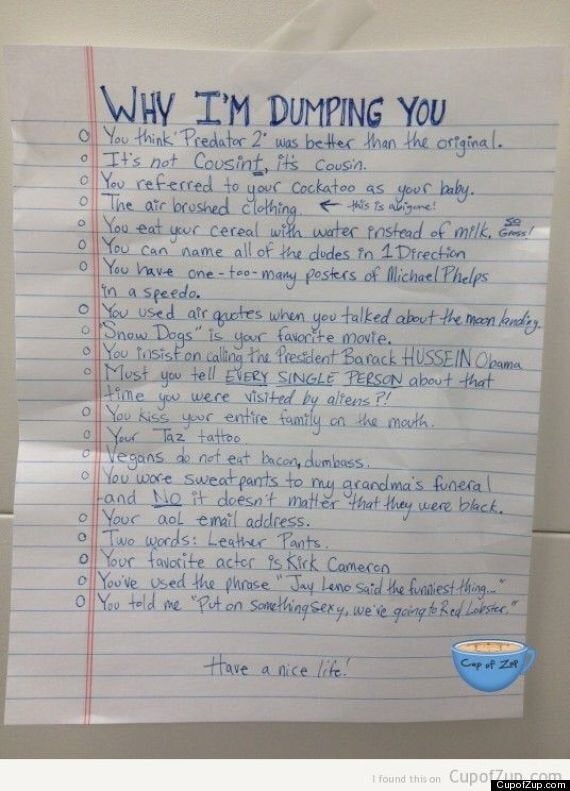 WHY I'M DUMPING YOU
You think "Predator 2" was better than the original.
It's not Cousint, it's cousin.
You referred to your cockatoo as your baby.
The air brushed clothing. ← this is a biggone!
You eat your cereal with water instead of milk. SO Gross!
You can name all of the dudes in 1 Direction
You have one-too-many posters of Michael Phelps
in a speedo.
You used air quotes when you talked about the moon landing.
"Snow Dogs" is your favorite movie.
You insist on calling the President Barack HUSSEIN Obama
Must you tell EVERY SINGLE PERSON about that
time you were visited by aliens?!
You kiss your entire family on the mouth.
Your Taz tattoo
Vegans do not eat bacon, dumbass.
You wore sweatpants to my grandma's funeral
-and NO it doesn't matter that they were black.
Your aol email address.
Two words: Leather Pants.
Your favorite actor is Kirk Cameron
You've used the phrase "Jay Leno said the funniest thing..."
You told me "Put on something sexy, we're going to Red Lobster."
Have a nice life!
Cup of Zup
I found this on CupofZup.com
CupofZup.com